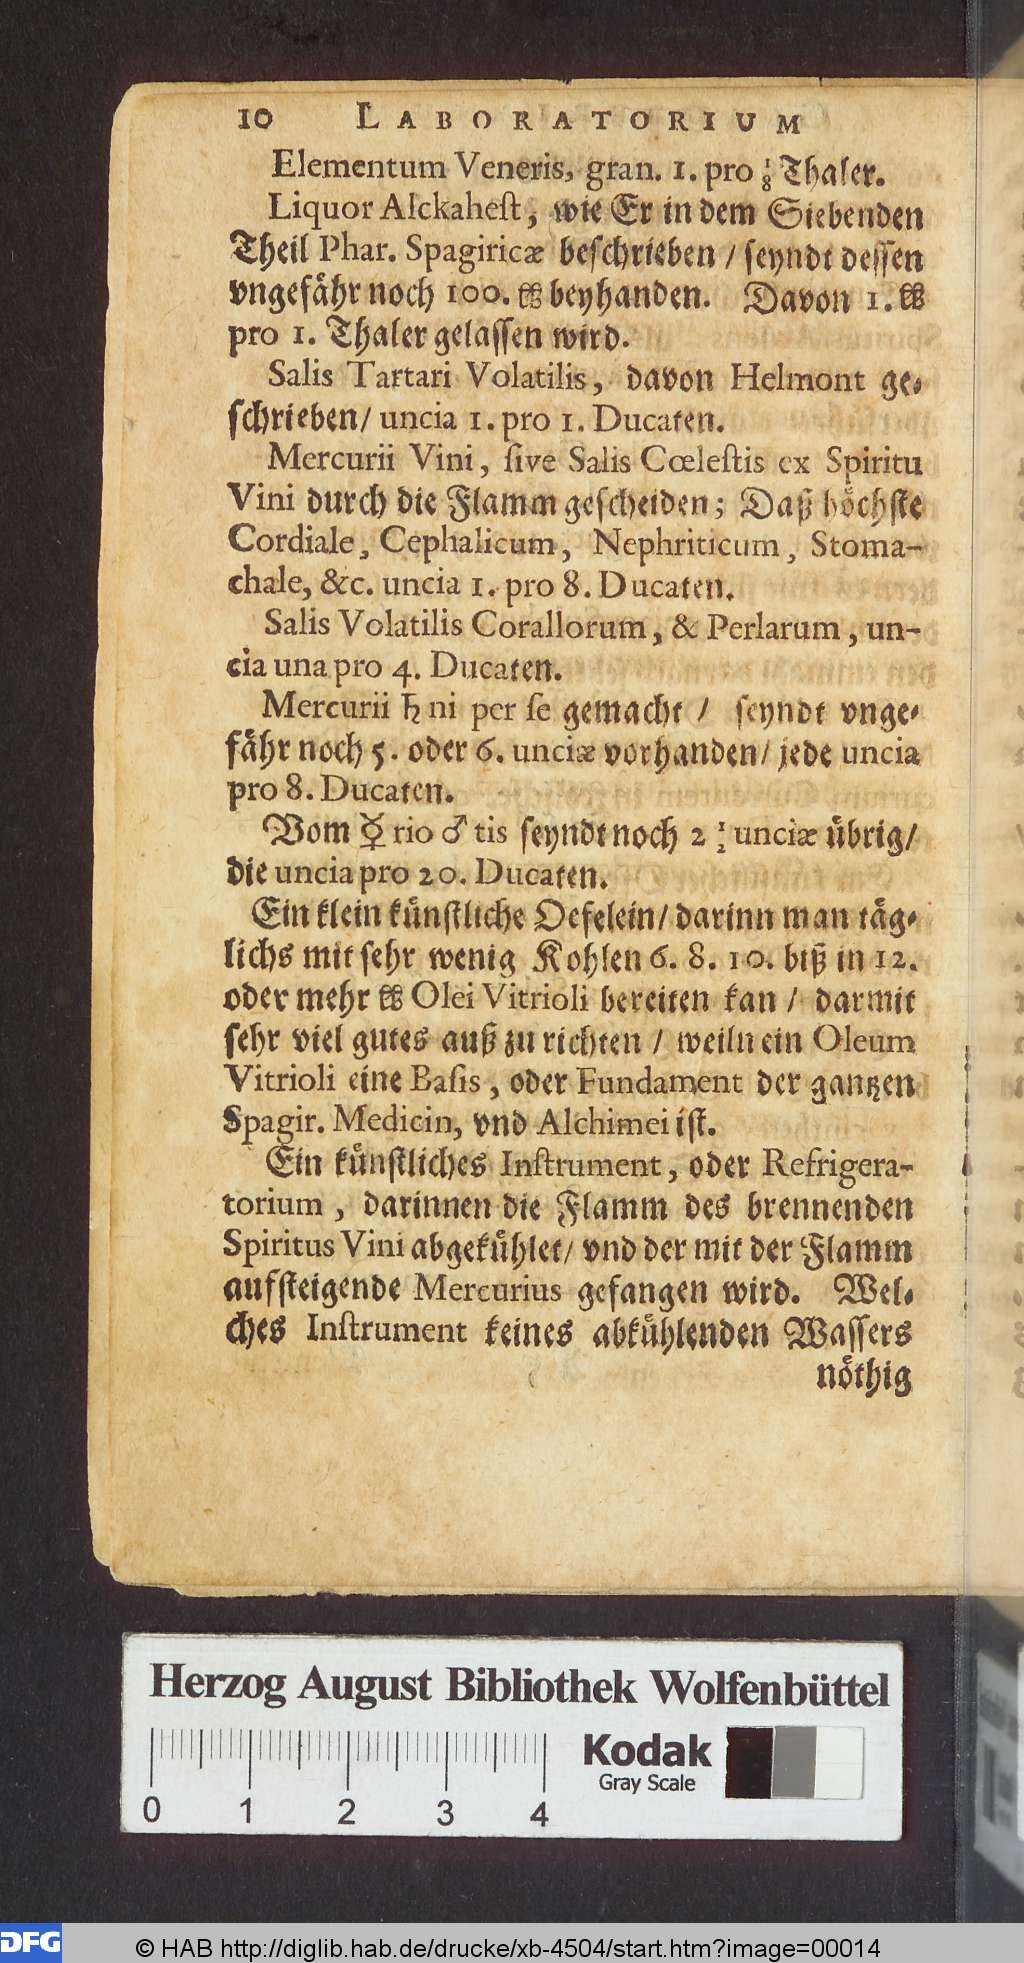 10 LABORATORIUM
Elementum Veneris, gran. 1. pro 1/8 Thaler.
Liquor Alckahest, wie Er in dem Siebenden
Theil Phar. Spagiricæ beschrieben / seyndt dessen
vngefåhr noch 100. ℔ beyhanden. Davon 1. ℔
pro 1. Thaler gelassen wird.
Salis Tartari Volatilis, davon Helmont ge-
schrieben / uncia 1. pro 1. Ducaten.
Mercurii Vini, sive Salis Cœlestis ex Spiritu
Vini durch die Flamm gescheiden; Daß hoͤchste
Cordiale, Cephalicum, Nephriticum, Stoma-
chale, &c. uncia 1. pro 8. Ducaten.
Salis Volatilis Corallorum, & Perlarum, un-
cia una pro 4. Ducaten.
Mercurii ♄ ni per se gemacht / seyndt vnge-
faͤhr noch 5. oder 6. unciæ vorhanden / jede uncia
pro 8. Ducaten.
Vom ☿ rio ♂ tis seyndt noch 2 1/2 unciæ uͤbrig /
die uncia pro 20. Ducaten.
Ein klein kuͤnstliche Oefelein / darinn man taͤg-
lichs mit sehr wenig Kohlen 6. 8. 10. biß in 12.
oder mehr ℔ Olei Vitrioli bereiten kan / darmit
sehr viel gutes auß zu richten / weiln ein Oleum
Vitrioli eine Basis, oder Fundament der gantzen
Spagir. Medicin, vnd Alchimei ist.
Ein kuͤnstliches Instrument, oder Refrigera-
torium, darinnen die Flamm des brennenden
Spiritus Vini abgekuͤhlet / vnd der mit der Flamm
aufsteigende Mercurius gefangen wird. Wel-
ches Instrument keines abkuͤhlenden Wassers
noͤthig
Herzog August Bibliothek Wolfenbüttel
Kodak
Gray Scale
0 1 2 3 4
DFG
© HAB http://diglib.hab.de/drucke/xb-4504/start.htm?image=00014